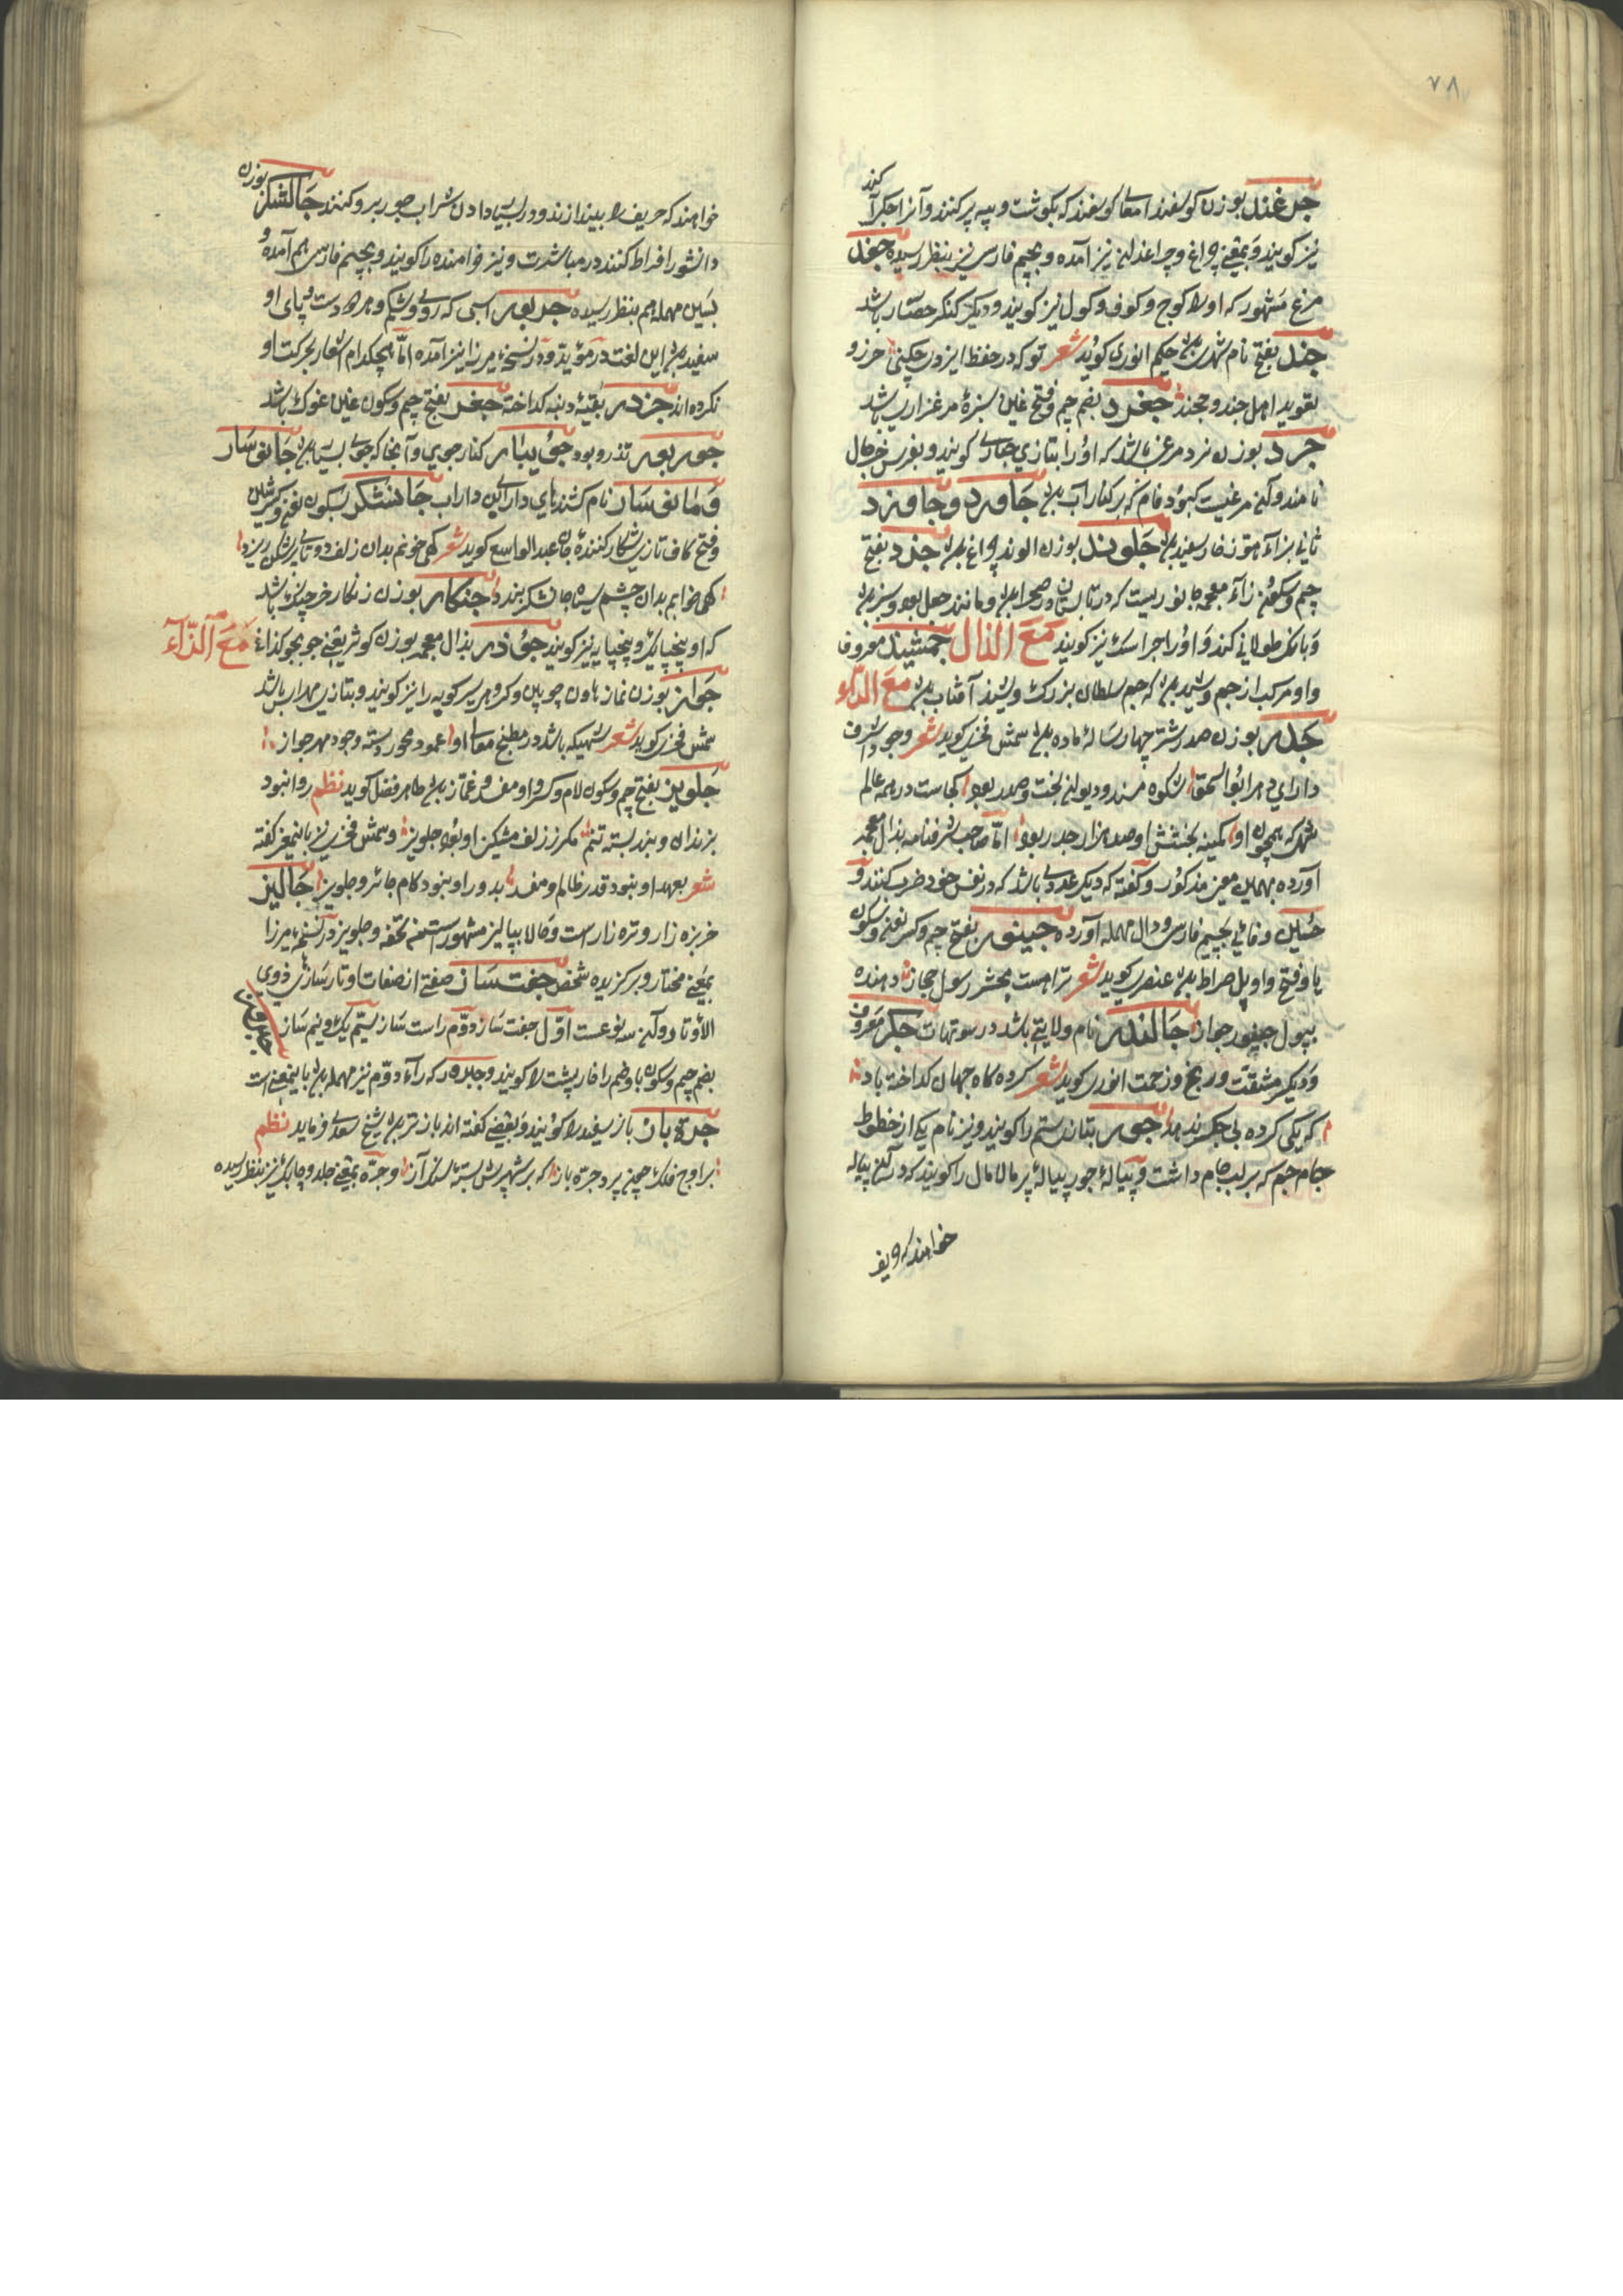 ٧٨
جرغند بوزن گوسفند امعای گوسفند که بگوشت و پیه پر کنند و آنرا جکرآکند
نیز گویند و بمعنی چراغ و چراغدان نیز آمده و بجیم فارسی نیز بنظر رسیده جغد
مرغ مشهور که اورا کوچ و کوف و کول نیز گویند و دیگر کنگر حصار باشد
جند بفتح نام شهریست حکیم انوری گوید شعر تو که در حفظ ایزدی چکنی حرز و
تعوید اهل جند و خجند جغرد بضم جیم و فتح غین سبزهٔ مرغزار باشد
جرد بوزن نرد مرغی باشد که اورا بتازی حباری گویند و بفرس خرچال
نامند و آن مرغیست کبود فام که بر کنار آب بود جاورد و جاوزد
ثانی بزاء هوّز خار سفید بود جلوند بوزن الوند چراغ بود جزد بفتح
جیم و سکون زاء معجمه جانوریست که در تابستان در صحرا بود و مانند جعل بود و سبز بود
و بانک طولانی کند و اورا جراسک نیز گویند مع الذال جمشید معروف
و او مرکب از جم و شید بود که جم سلطان بزرک و شید آفتاب بود مع الرّاء
جدر بوزن صدر شتر چهار سالهٔ ماده بود شمس فخری گوید شعر وجود اشرف
دارای دهر ابو اسحق شکوه مسند و دیوان تخت و صدر بود کجاست در همه عالم
شهی که همچون او کمینه بخشش او صد هزار جدر بود امّا صاحب شرفنامه بذال معجمه
آورده بهمین معنی مذکور و گفته که دیگر عددی باشد که در نفس خود ضرب کنند و
حسین وفائی بجیم فارسی و دال مهمله آورده جینور بفتح جیم و کسر نون و سکون
یا و فتح واو پل صراط بود عنصری گوید شعر تراهست محشر رسول حجاز دهنده
بپول جینور جواز جالندر نام ولایتی باشد در سوتهات جکر معروف
و دیگر مشقت و رنج و زحمت انوری گوید شعر کرده کاه جهان کداخته باد
که یکی کرده بی جکر ندهد جور بتازی ستم را گویند و نیز نام یکی از خطوط
جام جم که بر لب جام داشت و پیالهٔ جور پیالهٔ پر مالامال را گویند که در آن پیاله
خواهند که حریف
خواهند که حریف را بیندازند و در بسیار دادن شراب جور برو کنند جالشکر بوزن
دانشور افراط کننده در مباشرت و نیز خوامنده را گویند و بجیم فارسی هم آمده و
بسین مهمله هم بنظر رسیده جدبور اسبی که روی و شکم و هر دو دست و پای او
سفید بود این لغت در مؤید و در نسخهٔ میرزا نیز آمده امّا هیچکدام اشعار بحرکت او
نکرده‌اند جزدر بقیهٔ دنبه کداخته جغر بفتح جیم و سکون غین غوک باشد
جوربور تذرو بود جویبار کنار جوی و آنجا که جوی بسیار بود جانوسار
و مانوسار نام کشنده‌ای دارای بن داراب جانشکر بسکون نون و کسر شین
و فتح کاف تازی شکار کنندهٔ جان عبد الواسع گوید شعر کهی خونم بدان زلف دوتای مشکین ریزد
کهی خوابم بدان چشم سیاه جان شکر بندد جنکار بوزن زنکار خرچنک باشد
که او پنجپایک و پنجپایه نیز گویند جوذر بذال معجمه بوزن کوثر یعنی جو بجو کذار مع الزّاء
جواز بوزن نماز هاون چوبین و کرو هر سیر کوبه را نیز گویند و بتازی مهراس باشد
شمس فخری گوید شعر شهیکه باشد در مطبخ معالی او عمود محور و دسته وجود مهر جواز
جلویز بفتح جیم و سکون لام و کسر واو مفسد و غماز بود طاهر فضل گوید نظم روا نبود
بزندان و بند بسته تنم مکر ز زلف مشکین او بود جلویز و شمس فخری نیز باینمعنی گفته
شعر بعهد او نبود قدر ظالم و مفسد بدور او نبود کام جائر و جلویز جالیز
خربزه زار و تره زار است و حالا بپالیز مشهور است فی تحفه و جلویز در نسخهٔ میرزا
بمعنی مختار و برکزیده شخص جفت ساز صفتی از صفات اوتار سازهای ذوی
الاوتار و آن سه نوعست اوّل جفت ساز دوّم راست ساز سیّم یک و نیم ساز
بضم جیم و سکون با و ضم را خار پشت را گویند و جلاوز که راء دوّم نیز مهمله بود باینمعنی است
جره باز باز سفید را گویند و بعضی گفته‌اند باز نر بود شیخ سعدی فرماید نظم
بر اوج فلک چون پرد جره باز که بر شهپرش بستهٔ سنک آز و جرّه بمعنی جلد و چابک نیز بنظر رسیده